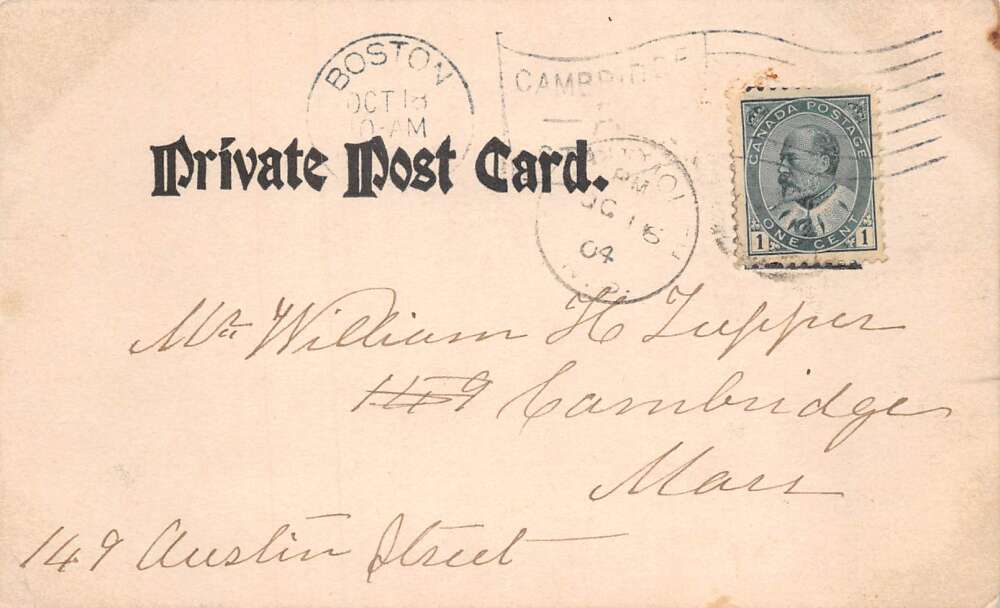 BOSTON
OCT 18
10-AM
CAMBRIDGE
Private Post Card.
PM
16
04
CANADA POSTAGE
ONE CENT
1 1
Mr William H Tupper
149 Cambridge
Mass
149 Austin Street